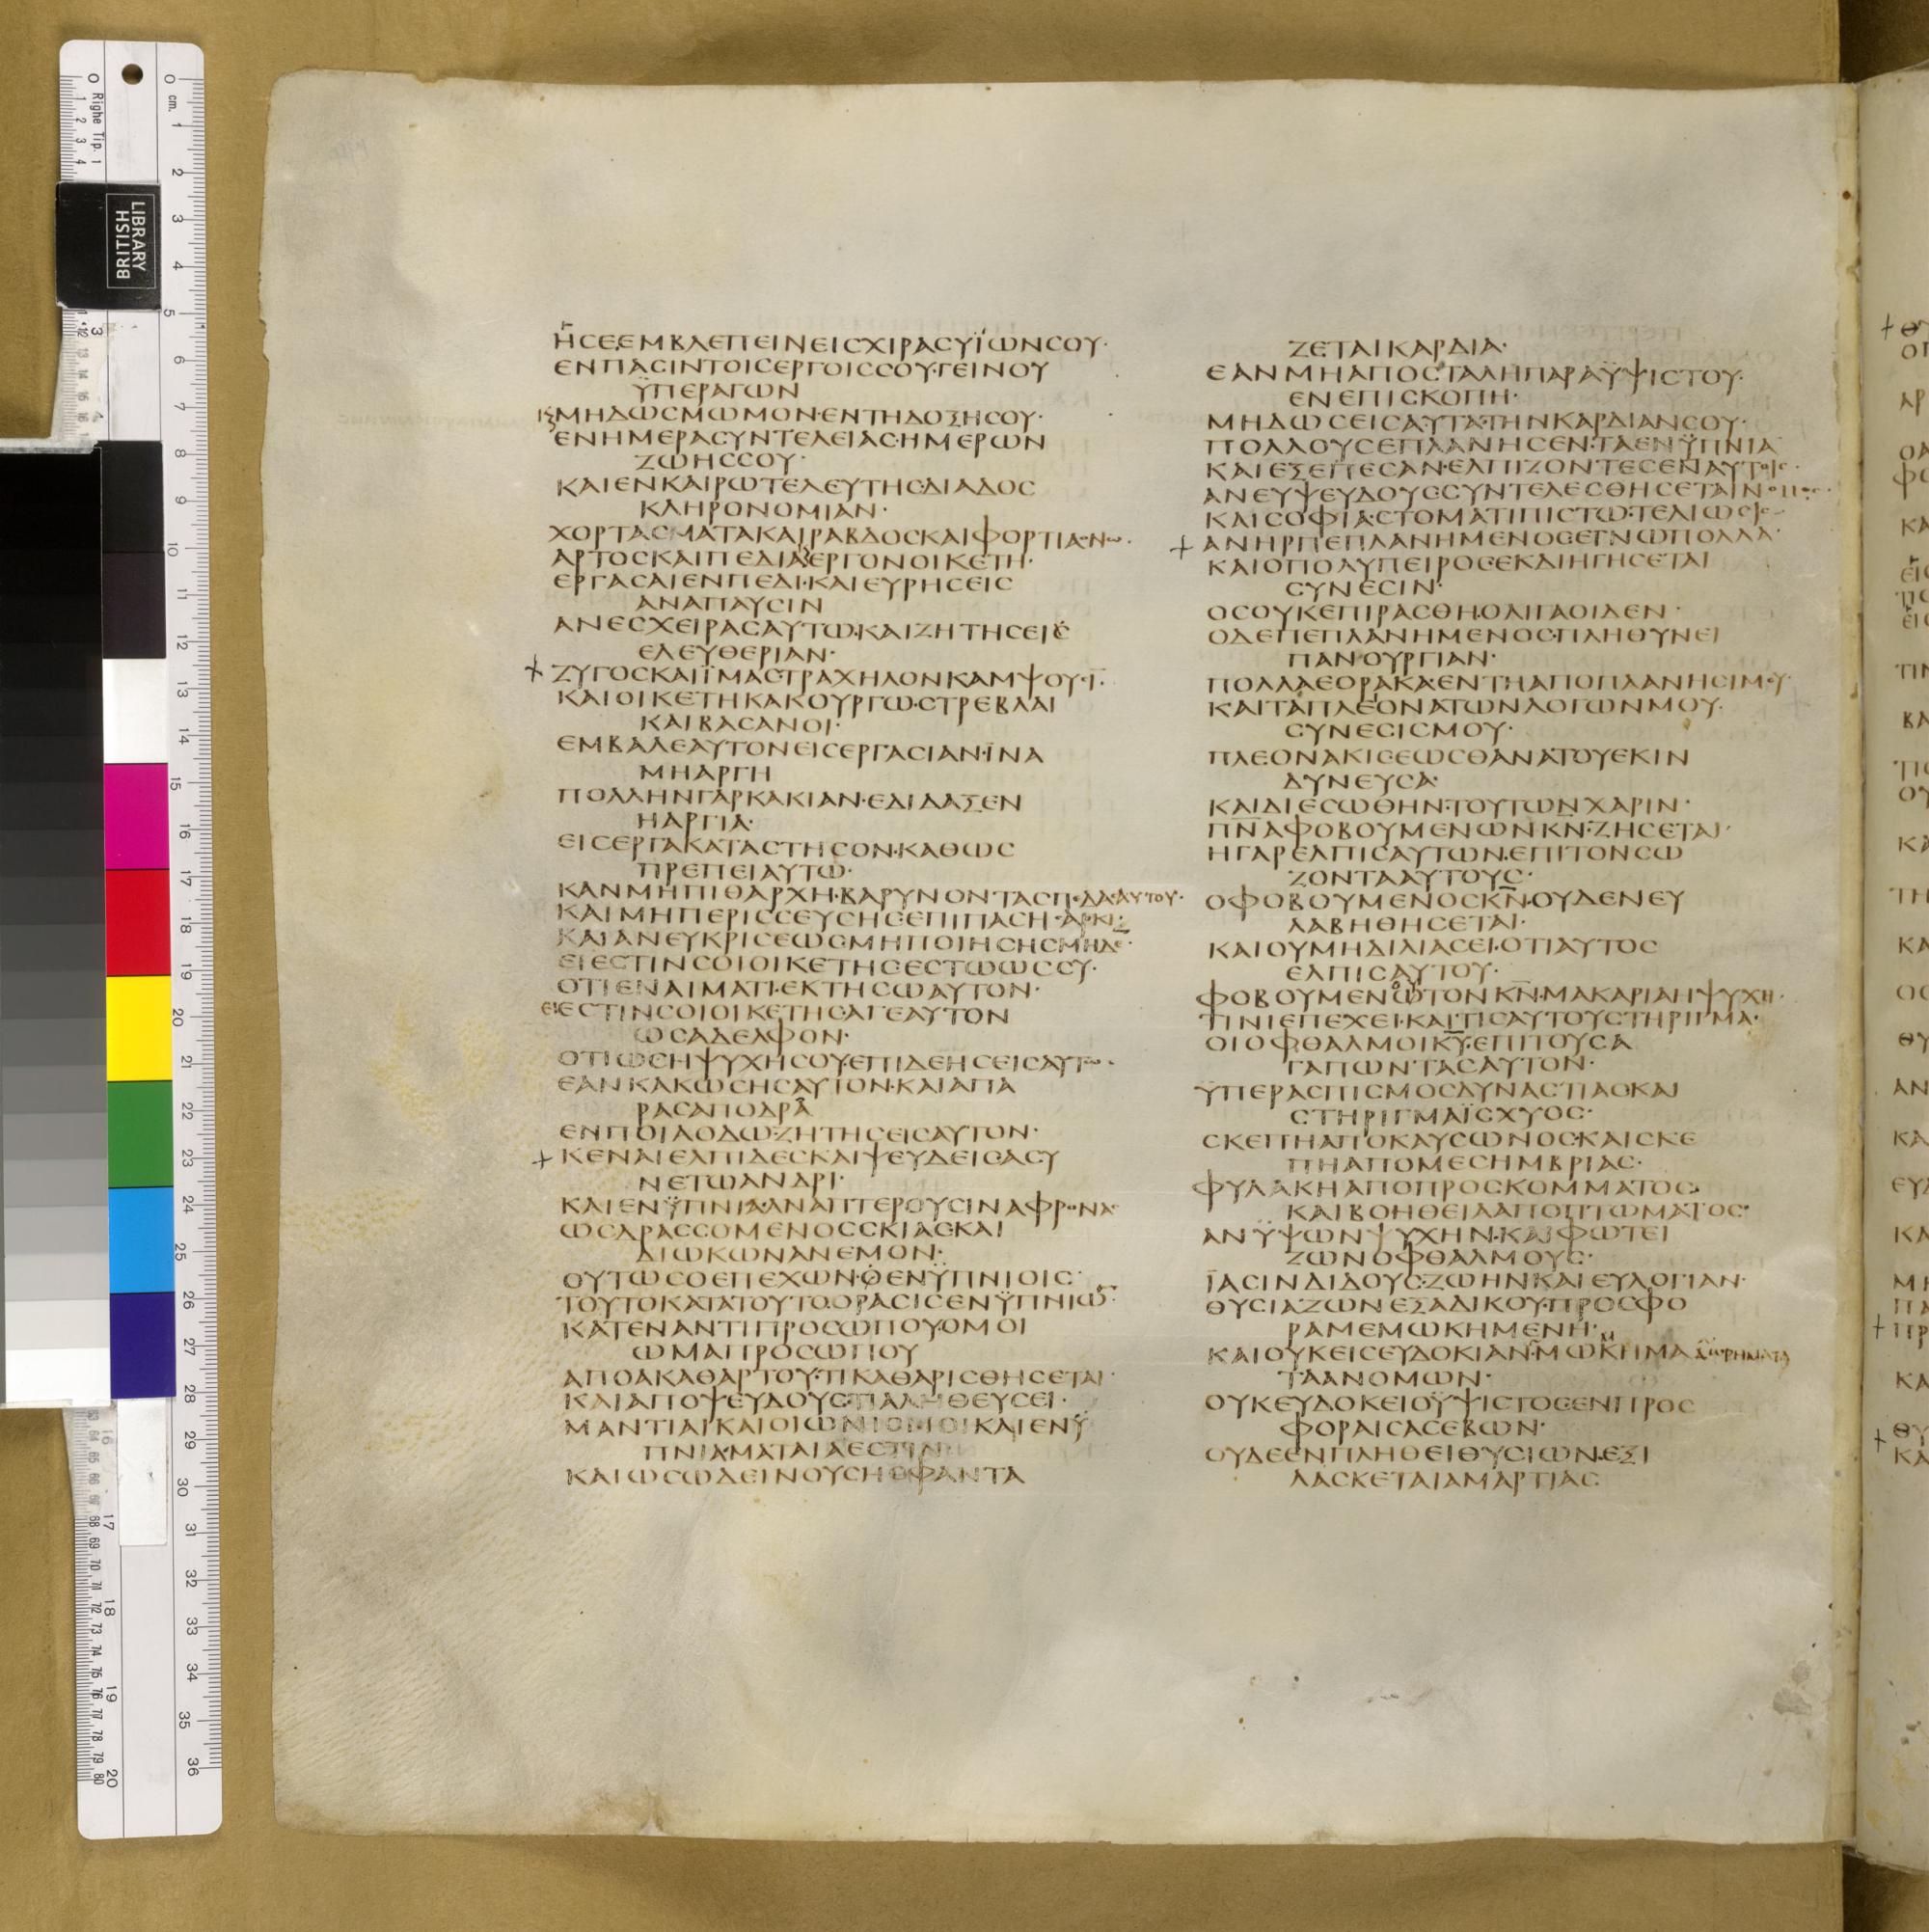 ΗϹΕΕΜΒΛΕΠΕΙΝΕΙϹΧΙΡΑϹΥΪΩΝϹΟΥ·
ΕΝΠΑϹΙΝΤΟΙϹΕΡΓΟΙϹϹΟΥ·ΓΕΙΝΟΥ
ΫΠΕΡΑΓΩΝ
ΜΗΔΩϹΜΩΜΟΝ·ΕΝΤΗΔΟΞΗϹΟΥ·
ΕΝΗΜΕΡΑϹΥΝΤΕΛΕΙΑϹ·ΗΜΕΡΩΝ
ΖΩΗϹϹΟΥ·
ΚΑΙΕΝΚΑΙΡΩΤΕΛΕΥΤΗϹ·ΔΙΑΔΟϹ
ΚΛΗΡΟΝΟΜΙΑΝ·
ΧΟΡΤΑϹΜΑΤΑΚΑΙΡΑΒΔΟϹΚΑΙΦΟΡΤΙΑ·ΝΩ·
ΑΡΤΟϹΚΑΙΠΕΔΙΑΕΡΓΟΝΟΙΚΕΤΗ·
ΕΡΓΑϹΑΙΕΝΠΕΔΙ·ΚΑΙΕΥΡΗϹΕΙϹ
ΑΝΑΠΑΥϹΙΝ
ΑΝΕϹΧΕΙΡΑϹΑΥΤΩ·ΚΑΙΖΗΤΗϹΕΙϹ
ΕΛΕΥΘΕΡΙΑΝ·
ΖΥΓΟϹΚΑΙΪΜΑϹΤΡΑΧΗΛΟΝΚΑΜΨΟΥϹΙ·
ΚΑΙΟΙΚΕΤΗΚΑΚΟΥΡΓΩ·ϹΤΡΕΒΛΑΙ
ΚΑΙΒΑϹΑΝΟΙ·
ΕΜΒΑΛΕΑΥΤΟΝΕΙϹΕΡΓΑϹΙΑΝ·ΪΝΑ
ΜΗΑΡΓΗ
ΠΟΛΛΗΝΓΑΡΚΑΚΙΑΝ·ΕΔΙΔΑΞΕΝ
ΗΑΡΓΙΑ·
ΕΙϹΕΡΓΑΚΑΤΑϹΤΗϹΟΝ·ΚΑΘΩϹ
ΠΡΕΠΕΙΑΥΤΩ·
ΚΑΝΜΗΠΙΘΑΡΧΗ·ΒΑΡΥΝΟΝΤΑϹΠΕΔΑ·ΑΥΤΟΥ·
ΚΑΙΜΗΠΕΡΙϹϹΕΥϹΗϹΕΠΙΠΑϹΗ·ϹΑΡΚΙ·
ΚΑΙΑΝΕΥΚΡΙϹΕΩϹΜΗΠΟΙΗϹΗϹΜΗΔΕ·
ΕΙΕϹΤΙΝϹΟΙΟΙΚΕΤΗϹ·ΕϹΤΩΩϹϹΥ·
ΟΤΙΕΝΑΙΜΑΤΙ·ΕΚΤΗϹΩΑΥΤΟΝ·
ΕΙΕϹΤΙΝϹΟΙΟΙΚΕΤΗϹ·ΑΓΕΑΥΤΟΝ
ΩϹΑΔΕΛΦΟΝ·
ΟΤΙΩϹΗΨΥΧΗϹΟΥ·ΕΠΙΔΕΗϹΕΙϹΑΥΤΩ·
ΕΑΝΚΑΚΩϹΗϹΑΥΤΟΝ·ΚΑΙΑΠΑ
ΡΑϹΑΠΟΔΡΑ
ΕΝΠΟΙΑΟΔΩ·ΖΗΤΗϹΕΙϹΑΥΤΟΝ·
ΚΕΝΑΙΕΛΠΙΔΕϹΚΑΙΨΕΥΔΕΙϹΑϹΥ
ΝΕΤΩΑΝΔΡΙ·
ΚΑΙΕΝΫΠΝΙΑ·ΑΝΑΠΤΕΡΟΥϹΙΝΑΦΡΟΝΑ·
ΩϹΔΡΑϹϹΟΜΕΝΟϹϹΚΙΑϹΚΑΙ
ΔΙΩΚΩΝΑΝΕΜΟΝ·
ΟΥΤΩϹΟΕΠΕΧΩΝ·ΘΕΝΫΠΝΙΟΙϹ·
ΤΟΥΤΟΚΑΤΑΤΟΥΤΟ·ΟΡΑϹΙϹΕΝΫΠΝΙΩ·
ΚΑΤΕΝΑΝΤΙΠΡΟϹΩΠΟΥ·ΟΜΟΙ
ΩΜΑΠΡΟϹΩΠΟΥ
ΑΠΟΑΚΑΘΑΡΤΟΥ·ΤΙΚΑΘΑΡΙϹΘΗϹΕΤΑΙ·
ΚΑΙΑΠΟΨΕΥΔΟΥϹ·ΤΙΑΛΗΘΕΥϹΕΙ·
ΜΑΝΤΙΑΙΚΑΙΟΙΩΝΙϹΜΟΙΚΑΙΕΝΫ
ΠΝΙΑ·ΜΑΤΑΙΑΕϹΤΙΝ
ΚΑΙΩϹΩΔΕΙΝΟΥϹΗϹΦΑΝΤΑ
ΖΕΤΑΙΚΑΡΔΙΑ·
ΕΑΝΜΗΑΠΟϹΤΑΛΗΠΑΡΑΫΨΙϹΤΟΥ·
ΕΝΕΠΙϹΚΟΠΗ·
ΜΗΔΩϹΕΙϹΑΥΤΑ·ΤΗΝΚΑΡΔΙΑΝϹΟΥ·
ΠΟΛΛΟΥϹΕΠΛΑΝΗϹΕΝ·ΤΑΕΝΫΠΝΙΑ
ΚΑΙΕΞΕΠΕϹΑΝ·ΕΛΠΙΖΟΝΤΕϹΕΝΑΥΤΟΙϹ·
ΑΝΕΥΨΕΥΔΟΥϹϹΥΝΤΕΛΕϹΘΗϹΕΤΑΙΝΟΜΟϹ·
ΚΑΙϹΟΦΙΑ·ϹΤΟΜΑΤΙΠΙϹΤΩ·ΤΕΛΙΩϹΙϹ
ΑΝΗΡΠΕΠΛΑΝΗΜΕΝΟϹΕΓΝΩΠΟΛΛΑ·
ΚΑΙΟΠΟΛΥΠΕΙΡΟϹΕΚΔΙΗΓΗϹΕΤΑΙ
ϹΥΝΕϹΙΝ·
ΟϹΟΥΚΕΠΙΡΑϹΘΗ·ΟΛΙΓΑΟΙΔΕΝ·
ΟΔΕΠΕΠΛΑΝΗΜΕΝΟϹ·ΠΛΗΘΥΝΕΙ
ΠΑΝΟΥΡΓΙΑΝ·
ΠΟΛΛΑΕΟΡΑΚΑ·ΕΝΤΗΑΠΟΠΛΑΝΗϹΙΜΟΥ·
ΚΑΙΤΑΠΛΕΟΝΑΤΩΝΛΟΓΩΝΜΟΥ·
ϹΥΝΕϹΙϹΜΟΥ·
ΠΛΕΟΝΑΚΙϹ·ΕΩϹΘΑΝΑΤΟΥΕΚΙΝ
ΔΥΝΕΥϹΑ·
ΚΑΙΔΙΕϹΩΘΗΝ·ΤΟΥΤΩΝΧΑΡΙΝ·
ΠΝΑΦΟΒΟΥΜΕΝΩΝΚΝ·ΖΗϹΕΤΑΙ·
ΗΓΑΡΕΛΠΙϹΑΥΤΩΝ·ΕΠΙΤΟΝϹΩ
ΖΟΝΤΑΑΥΤΟΥϹ·
ΟΦΟΒΟΥΜΕΝΟϹΚΝ·ΟΥΔΕΝΕΥ
ΛΑΒΗΘΗϹΕΤΑΙ·
ΚΑΙΟΥΜΗΔΙΛΙΑϹΕΙ·ΟΤΙΑΥΤΟϹ
ΕΛΠΙϹΑΥΤΟΥ·
ΦΟΒΟΥΜΕΝΩΤΟΝΚΝ·ΜΑΚΑΡΙΑΗΨΥΧΗ·
ΤΙΝΙΕΠΕΧΕΙ·ΚΑΙΤΙϹΑΥΤΟΥϹΤΗΡΙΓΜΑ·
ΟΙΟΦΘΑΛΜΟΙΚΥ·ΕΠΙΤΟΥϹΑ
ΓΑΠΩΝΤΑϹΑΥΤΟΝ·
ΫΠΕΡΑϹΠΙϹΜΟϹΔΥΝΑϹΤΙΑϹΚΑΙ
ϹΤΗΡΙΓΜΑΪϹΧΥΟϹ·
ϹΚΕΠΗΑΠΟΚΑΥϹΩΝΟϹ·ΚΑΙϹΚΕ
ΠΗΑΠΟΜΕϹΗΜΒΡΙΑϹ·
ΦΥΛΑΚΗΑΠΟΠΡΟϹΚΟΜΜΑΤΟϹ·
ΚΑΙΒΟΗΘΕΙΑΑΠΟΠΤΩΜΑΤΟϹ·
ΑΝΥΨΩΝΨΥΧΗΝ·ΚΑΙΦΩΤΕΙ
ΖΩΝΟΦΘΑΛΜΟΥϹ·
ΪΑϹΙΝΔΙΔΟΥϹ·ΖΩΗΝΚΑΙΕΥΛΟΓΙΑΝ·
ΘΥϹΙΑΖΩΝΕΞΑΔΙΚΟΥ·ΠΡΟϹΦΟ
ΡΑΜΕΜΩΚΗΜΕΝΗ·
ΚΑΙΟΥΚΕΙϹΕΥΔΟΚΙΑΝ·ΜΩΚΗΜΑ
ΤΑΑΝΟΜΩΝ·
ΟΥΚΕΥΔΟΚΕΙΟΫΨΙϹΤΟϹΕΝΠΡΟϹ
ΦΟΡΑΙϹΑϹΕΒΩΝ·
ΟΥΔΕΕΝΠΛΗΘΕΙΘΥϹΙΩΝ·ΕΞΙ
ΛΑϹΚΕΤΑΙΑΜΑΡΤΙΑϹ
BRITISH
LIBRARY